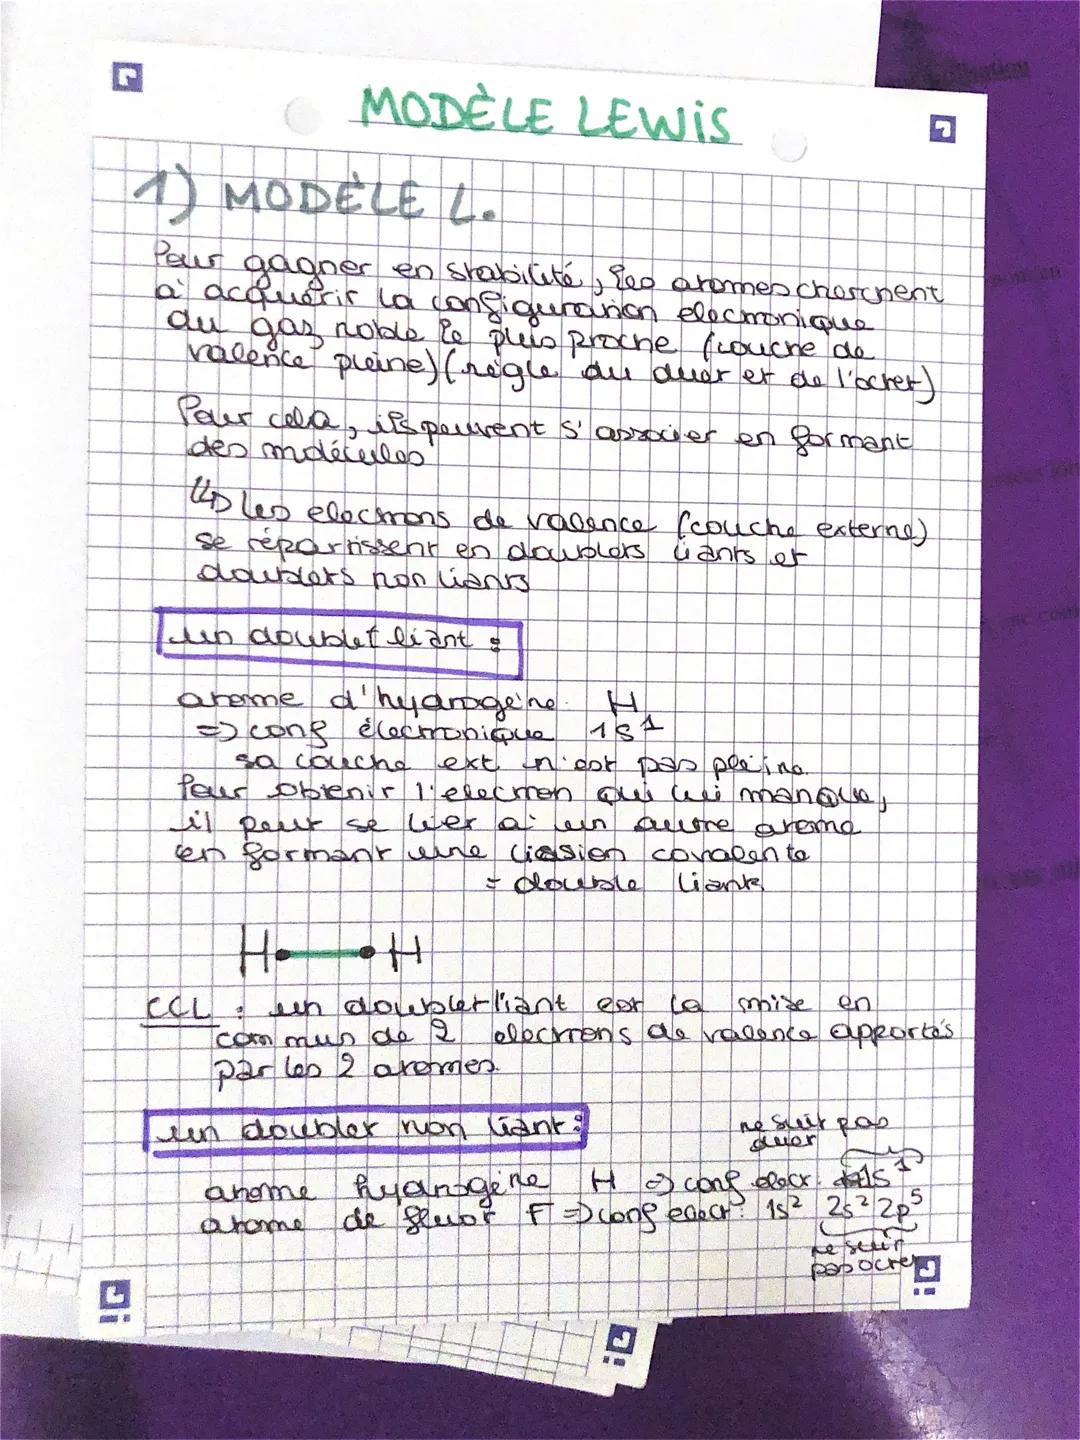 MODÈLE LEWIS
1) MODÈLE L.
Pour gagner en stabilité, les atomes cherchent
à acquérir la configuration electronique
du gaz noble le plus proche (couche de
valence pleine) (règle du duet et de l'octet)
Pour cela, ils peuvent s'associer en formant
des molécules
↳ les electrons de valence (couche externe)
se répartissent en doublets liants et
doublets non liants
un doublet liant :
atome d'hydrogène H
=> conf électronique 1s1
sa couche ext n'est pas pleine.
Pour obtenir l'electron qui lui manque,
il peut se lier à un autre atome
en formant une liaison covalente
= double liant
H H
CCL : un doublet liant est la mise en
commun de 2 electrons de valence apportés
par les 2 atomes.
un doublet non liant :
ne suit pas
duet
atome hydrogène H => conf elect. 1s1
atome de fluor F => conf elect : 1s2 2s2 2p5
ne suit
pas octet